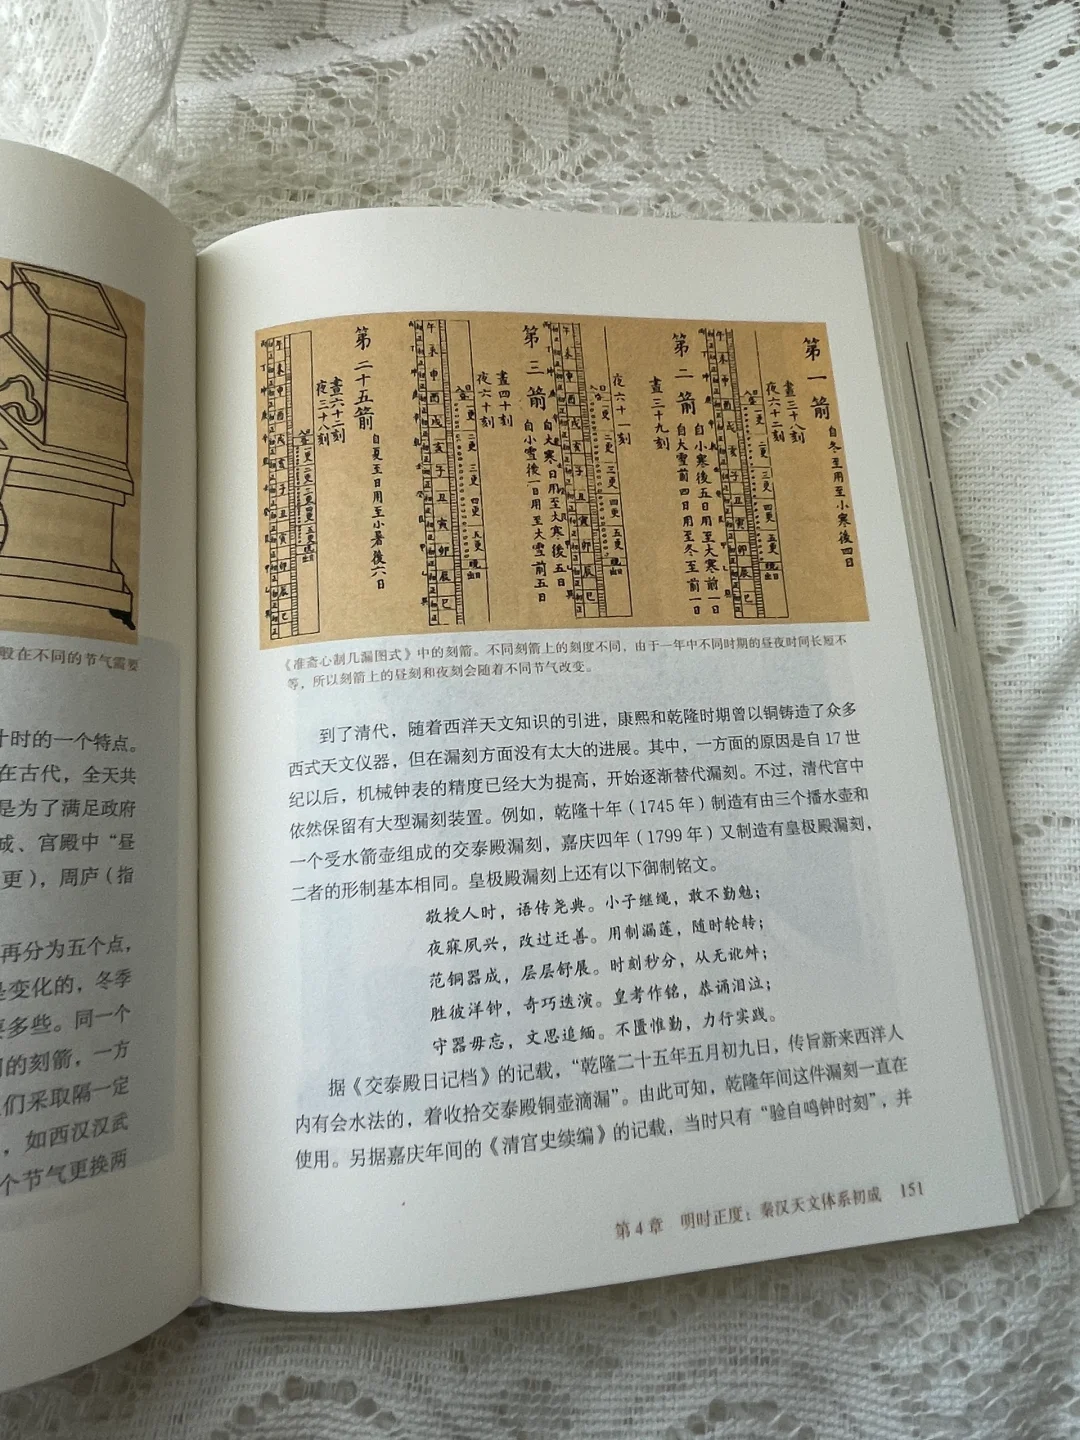 般在不同的节气需要
计时的一个特点。
在古代，全天共
是为了满足政府
城、宫殿中“昼
更），周庐（指
再分为五个点，
是变化的，冬季
要多些。同一个
的刻箭，一方
们采取隔一定
，如西汉汉武
个节气更换两
第一箭
自冬至用至小寒后四日
晝三十八刻
夜六十二刻
第二箭
自小寒後五日用至大寒前一日
自大雪前四日用至冬至前一日
晝三十九刻
夜六十一刻
第三箭
自大寒日用至大寒後五日
自小雪後一日用至大雪前五日
晝四十刻
夜六十刻
第二十五箭
自夏至日用至小暑後六日
晝六十二刻
夜三十八刻
《准斋心制几漏图式》中的刻箭。不同刻箭上的刻度不同，由于一年中不同时期的昼夜时间长短不
等，所以刻箭上的昼刻和夜刻会随着不同节气改变。
到了清代，随着西洋天文知识的引进，康熙和乾隆时期曾以铜铸造了众多
西式天文仪器，但在漏刻方面没有太大的进展。其中，一方面的原因是自 17 世
纪以后，机械钟表的精度已经大为提高，开始逐渐替代漏刻。不过，清代宫中
依然保留有大型漏刻装置。例如，乾隆十年（1745 年）制造有由三个播水壶和
一个受水箭壶组成的交泰殿漏刻，嘉庆四年（1799 年）又制造有皇极殿漏刻，
二者的形制基本相同。皇极殿漏刻上还有以下御制铭文。
敬授人时，语传尧典。小子继绳，敢不勤勉；
夜寐夙兴，改过迁善。用制漏莲，随时轮转；
范铜器成，层层舒展。时刻秒分，从无讹舛；
胜彼洋钟，奇巧迭演。皇考作铭，恭诵泪泣；
守器毋忘，文思追缅。不匮惟勤，力行实践。
据《交泰殿日记档》的记载，“乾隆二十五年五月初九日，传旨新来西洋人
内有会水法的，着收拾交泰殿铜壶滴漏”。由此可知，乾隆年间这件漏刻一直在
使用。另据嘉庆年间的《清宫史续编》的记载，当时只有“验自鸣钟时刻”，并
第 4 章 明时正度：秦汉天文体系初成 151